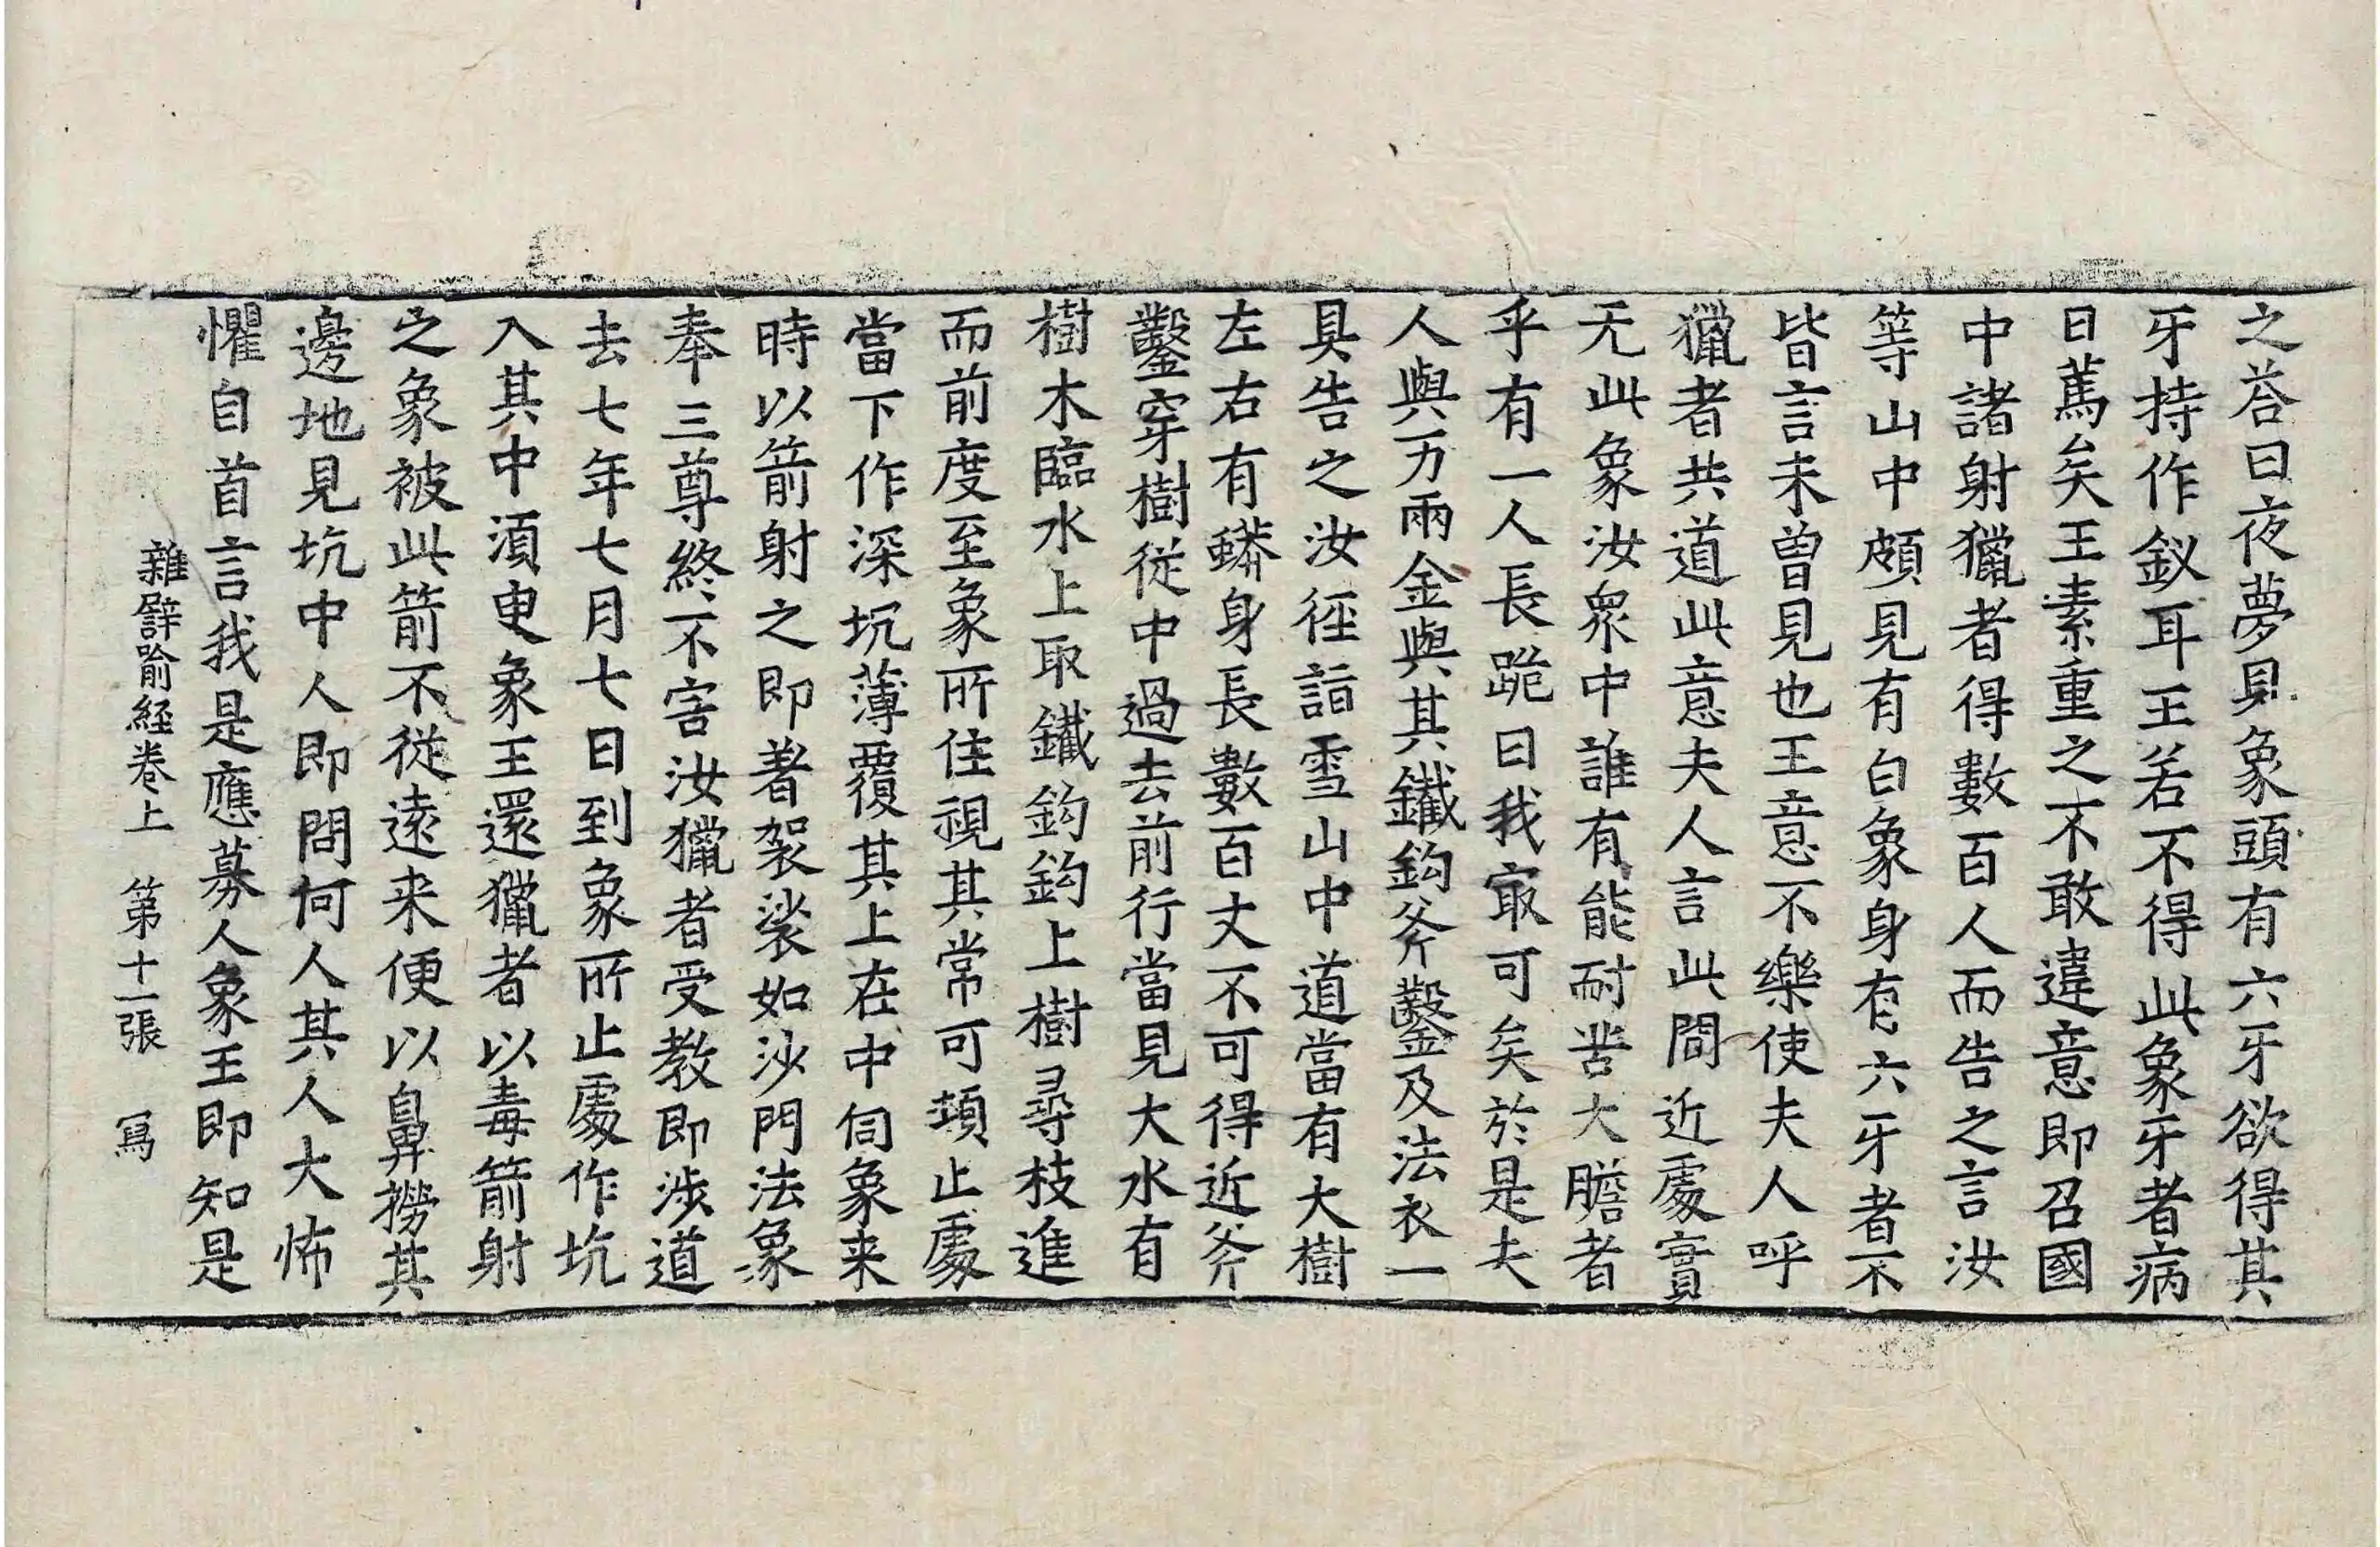 之荅曰夜夢見象頭有六牙欲得其
牙持作釵耳王若不得此象牙者病
日篤矣王素重之不敢違意即召國
中諸射獵者得數百人而告之言汝
等山中頗見有白象身有六牙者不
皆言未曽見也王意不樂使夫人呼
獵者共道此意夫人言此間近處實
无此象汝衆中誰有能耐苦大膽者
乎有一人長跪曰我㝡可矣於是夫
人與万兩金與其鐵鉤斧鑿及法衣一
具告之汝徑詣雪山中道當有大樹
左右有蟒身長數百丈不可得近斧
鑿穿樹從中過去前行當見大水有
樹木臨水上取鐵鉤鉤上樹尋枝進
而前度至象所住視其常可頓止處
當下作深坑薄覆其上在中伺象来
時以箭射之即著袈裟如沙門法象
奉三尊終不害汝獵者受教即涉道
去七年七月七日到象所止處作坑
入其中須臾象王還獵者以毒箭射
之象被此箭不從遠来便以鼻撈其
邊地見坑中人即問何人其人大怖
懼自首言我是應募人象王即知是
雜辟喻經卷上 第十一張 寫